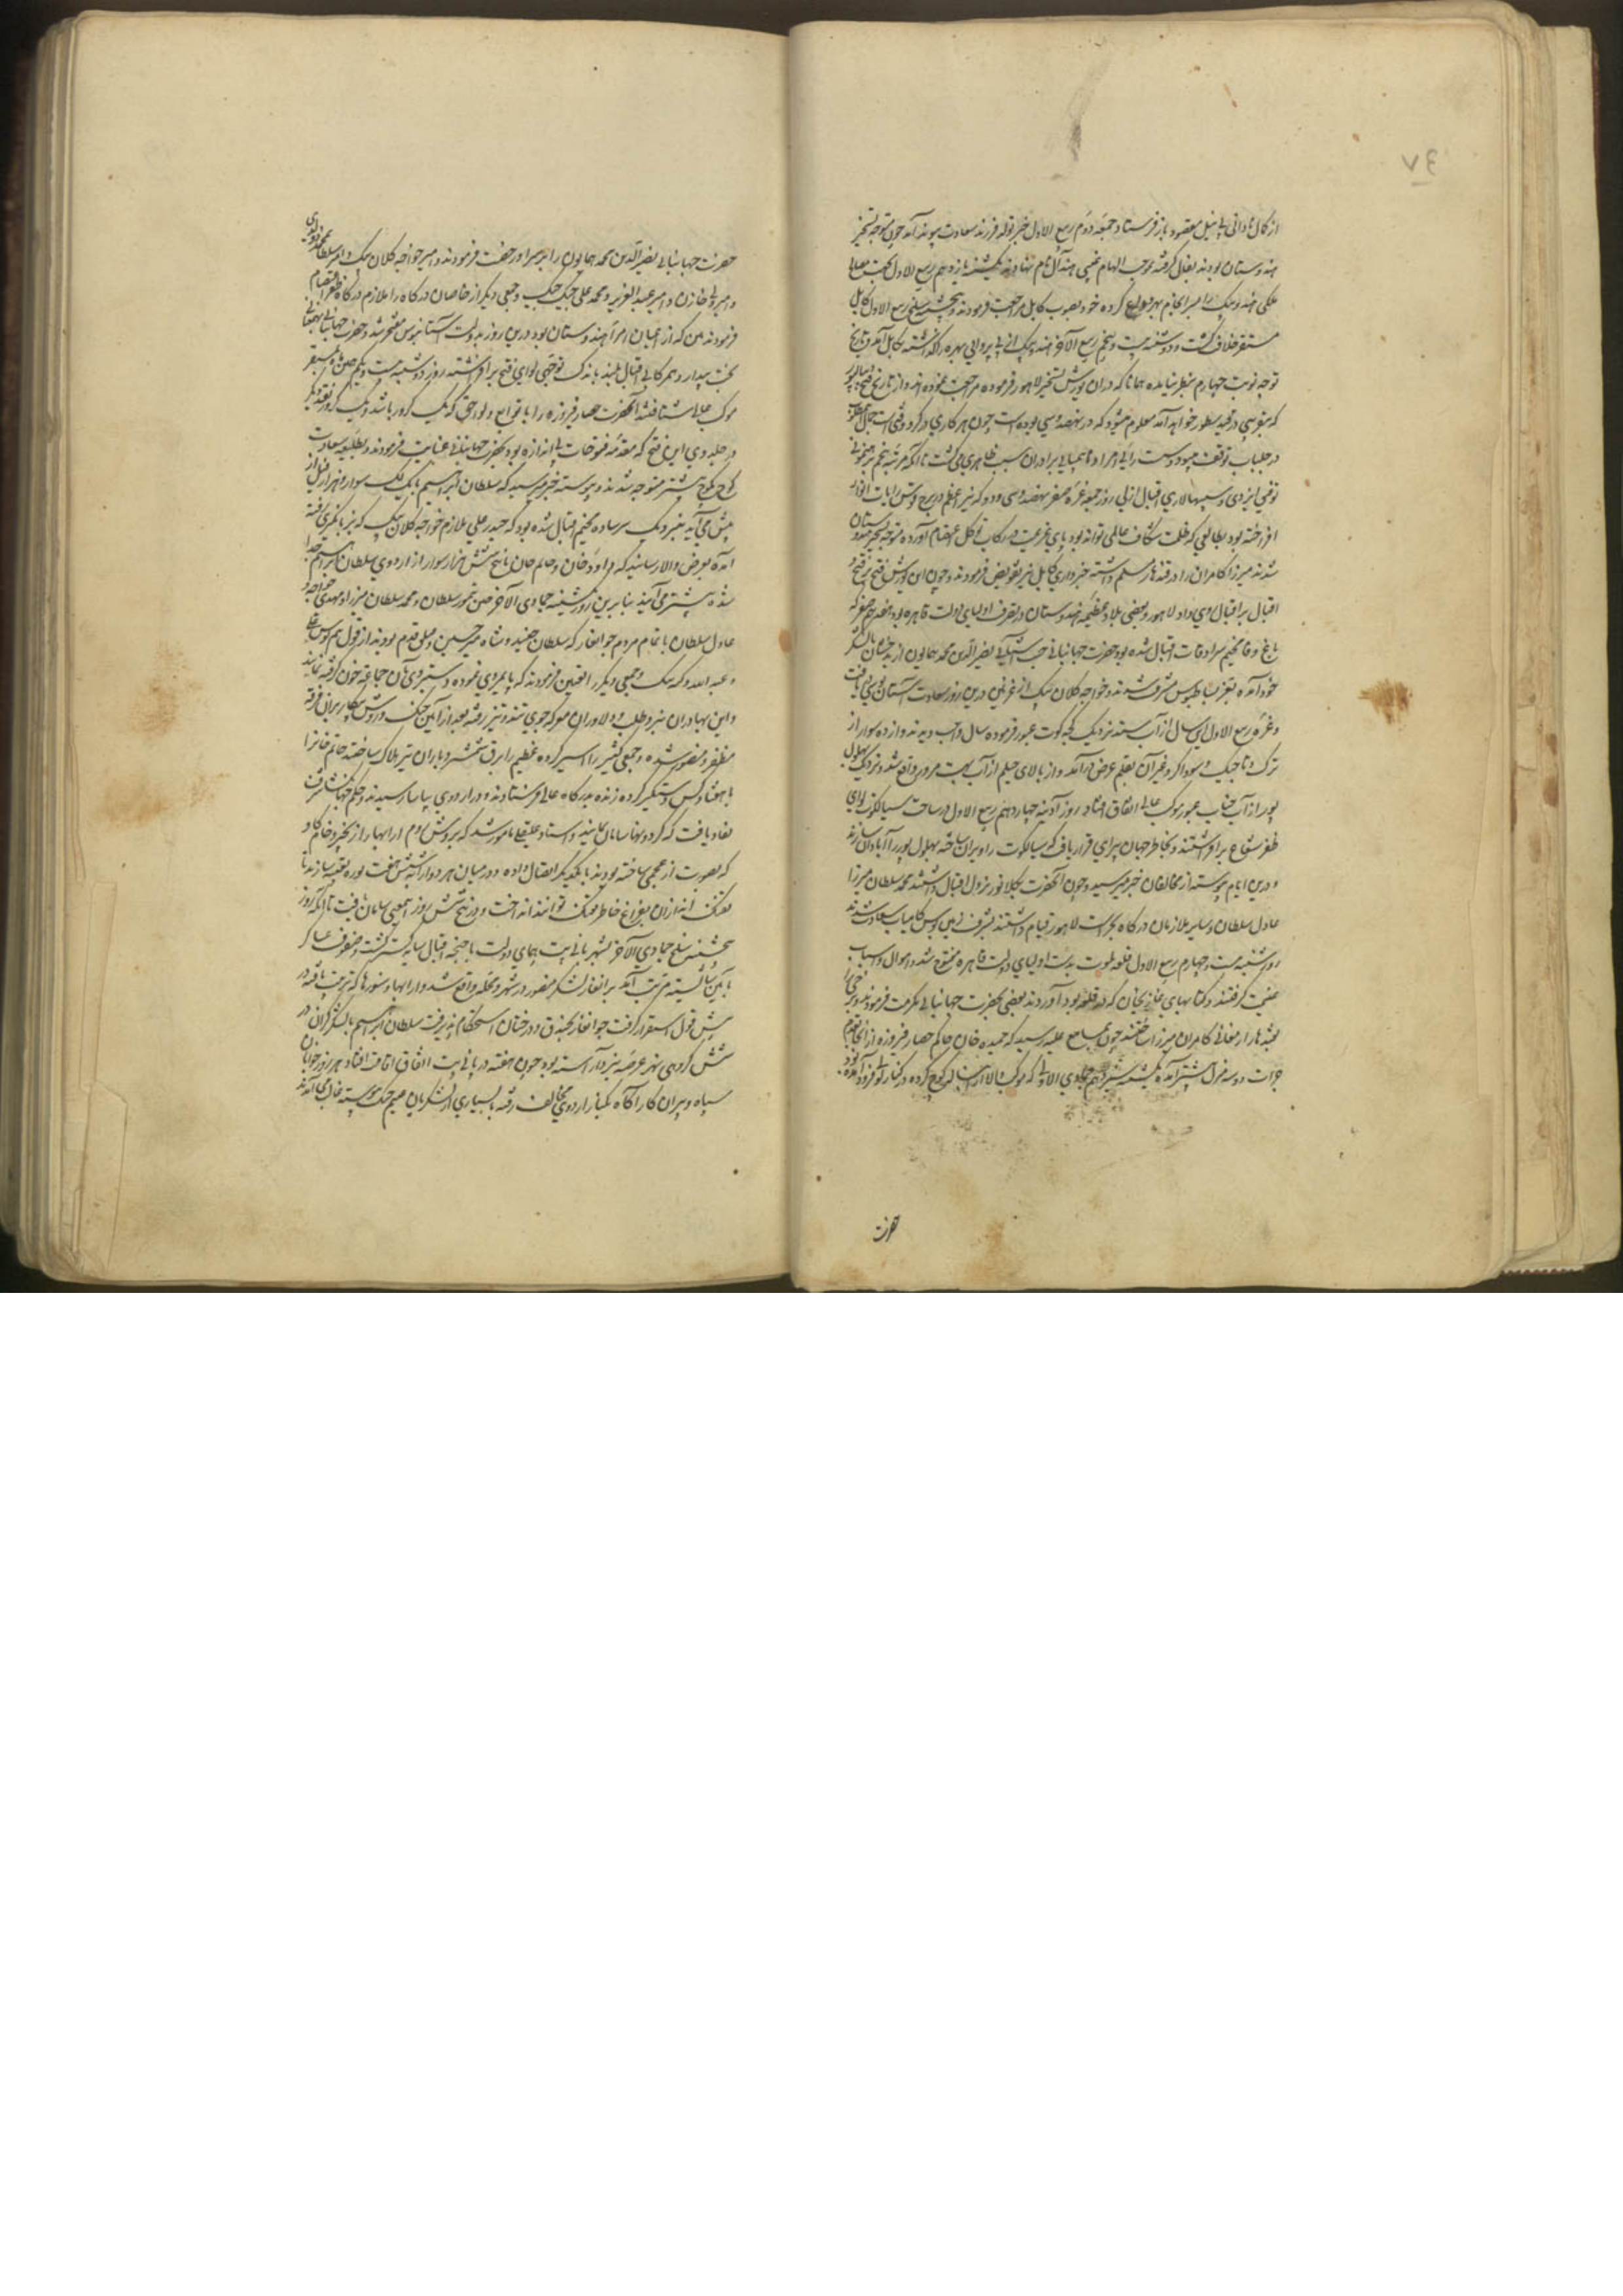 ۳۷
از کمال نادانی بی نیل مقصود باز فرستاد و جمعه دوم ربیع الاول خبر تولد فرزند سعادت پیوند آمد چون متوجه تسخیر
هندوستان بودند بفال گرفته بموجب الهام غیبی هندال نام نهادند یازدهم ربیع الاول بجهت مصالح
ملکی هندو بیک را کرده خود بصوب کابل مراجعت فرمودند و سلخ ربیع الاول کابل
مستقر خلافت گشت و دوشنبه بیست و پنجم ربیع الآخر هندو بیک از بی پروایی بهره را گذاشته بکابل آمد و تاریخ
توجه نوبت چهارم بنظر نیامده همانا که در آن یورش تسخیر لاهور فرموده مراجعت نموده اند و از تاریخ فتح
که بتقریبی در قید سطور خواهد آمد معلوم میشود که در نهصد و سی بوده است چون هر کاری در گرو وقتی است جمال
در جلباب توقف میبود و سست رایی امرا و ناهمپایی برادران سبب ظاهری میگشت تا آنکه مرتبه پنجم برهنمونی
توفیق ایزدی و سپهسالاری اقبال ازلی روز جمعه غره صفر نهصد و سی و دو که نیر اعظم در برج قوس رایات انوار
افراخته بود بطالعی که ظلمت شکاف عالمی تواند بود پای عزیمت در رکاب توکل و اعتصام آورده متوجه تسخیر هندوستان
شدند میرزا کامران را در قندهار مسلم داشته خبرداری کابل نیز بتفویض فرمودند و چون این یورش فتح بر فتح و
اقبال بر اقبال روی داد لاهور و بعضی بلاد عظیمه هندوستان در تصرف اولیای دولت قاهره بود هفدهم صفر که
باغ وفا مخیم سرادقات اقبال شده بود حضرت جهانبانی جنت آشیانی نصیر الدین محمد همایون از بدخشان با لشکر
خود آمده بعز بساط بوس مشرف شدند و خواجه کلان بیک از غزنین درین روز سعادت آستان بوسی یافت
و غره ربیع الاول این سال از آب سند نزدیک کچه کوت عبور فرموده سان واجب دیدند دوازده سوار از
ترک و تاجیک و سوداگر و غیر آن بقلم عرض درآمد و از بالای جیلم از آب بهت مرور واقع شد و نزدیک بهلول
پور از آب چناب عبور موکب عالی اتفاق افتاد روز آدینه چهاردهم ربیع الاول در ساحت سیالکوت لوای
ظفر شعاع برافراشتند و بخاطر جهان پیرای قرار یافت که سیالکوت را ویران ساخته بهلول پور را آبادان سازند
و درین ایام پیوسته از مخالفان خبر میرسید و چون آنحضرت بکلانور نزول اقبال داشتند محمد سلطان میرزا
عادل سلطان و سایر ملازمان درگاه که بحراست لاهور قیام داشتند بشرف زمین بوس کامیاب سعادت شدند
روز شنبه بیست و چهارم ربیع الاول قلعه ملوت بدست اولیای دولت قاهره مفتوح شد و اموال و اسباب
غنیمت گرفتند و کتابهای غازی خان که در قلعه بود آوردند بعضی بحضرت جهانبانی مکرمت فرمودند و برخی را
بقندهار ارمغانی کامران میرزا ساختند چون بمسامع علیه رسید که حمیده خان حاکم حصار فیروزه از آنجا بعزم
جرات دو سه منزل پیشتر آمده یکشنبه سیزدهم جمادی الاولی که موکب والا از انباله کوچ کرده در کنار کولی فرود آمده بود
حضرت
حضرت جهانبانی نصیر الدین محمد همایون را برسر او رخصت فرمودند و امیر خواجه کلان بیک و امیر سلطان محمد دولدی
و امیر ولی خازن و امیر عبد العزیز و محمد علی جنگ جنگ و جمعی دیگر از خاصان درگاه را ملازم درگاه ظفر اعتصام
فرمودند ببن که از اعیان امرای هندوستان بود درین روز بدولت آستانبوس مفتخر شد و حضرت جهانبانی بهمعنانی
بخت بیدار و همرکابی اقبال بلند باندک توجهی لوای فتح برافراشتند روز دوشنبه بیست و یکم همین ماه بمستقر
موکب عالی شتافتند آنحضرت حصار فیروزه را با توابع و لواحق که یک کرور باشد و یک کرور نقد دیگر
در جلدوی این فتح که مقدمه فتوحات بی اندازه بود بحضرت جهانبانی عنایت فرمودند و بطلیعه سعادت
کوچ بکوچ پیشتر متوجه شدند و پیوسته خبر میرسید که سلطان ابراهیم با یک لک سوار و هزار فیل از
پیش می آید نزدیک سرساوه مخیم اقبال شده بود که حیدر علی ملازم خواجه کلان بیک که بزبانگیری رفته
آمده بعرض والا رسانید که داود خان و حاتم خان با پنج شش هزار سوار از اردوی سلطان ابراهیم جدا
شده پیشتر می آیند بنابرین روز یکشنبه جمادی الآخر چین تیمور سلطان و محمد سلطان میرزا و مهدی خواجه و
عادل سلطان با تمام مردم جوانغار که سلطان جنید و شاه میر حسین و قتلق قدم بودند از قول هم یونس علی
و عبد الله و کته بیک و جمعی دیگر را تعین فرمودند که پایمردی نموده و دستبردی بآن جماعه خون گرفته نمایند
و این بهادران نبرد طلب و دلاوران معرکه جوی تند و تیز رفته بعد از آیین جنگ و روش پیکار بران فرقه
مظفر و منصور شده و جمعی کثیر را اسیر کرده عظیم را برق شمشیر و باران تیر هلاک ساختند حاتم خانرا
با هفتاد کس دستگیر کرده زنده بدرگاه عالی فرستادند و در اردوی بیاسا رسیدند و حکم جهانمطاع شرف
نفاذ یافت که گردونها سامان نمایند و استاد علیقلی مامور شد که بروش روم ارابها را از زنجیر و خام گاو
که بصورت ارغمجی ساخته بودند بایکدیگر اتصال داده در میان هر دو ارابه شش هفت توره تعبیه سازند تا
تفنگ اندازان بفراغ خاطر تفنگ توانند انداخت و در پنج شش روز اینمعنی سامان یافت تا آنکه روز
پنجشنبه سلخ جمادی الآخر بشهر پانی پت همای دولت با جنحه اقبال سایه گستر گشت و صفوف عساکر
بآیین شایسته ترتیب آمد برانغار لشکر منصور در شهر و محله واقع شد و ارابها و تورها که ترتیب یافته در
پیش قول استقرار گرفت جوانغار بخندق و درختان استحکام پذیرفت سلطان ابراهیم با لشکر گران در
شش کروهی شهر عرصه نبرد آراسته بود چون هفته در پانی پت اتفاق اقامت افتاد هر روز جوانان
سپاه و پیران کار آگاه بکنار اردوی مخالف رفته با بسیاری از لشکریان غنیم جنگ پیوسته غالب می آمدند